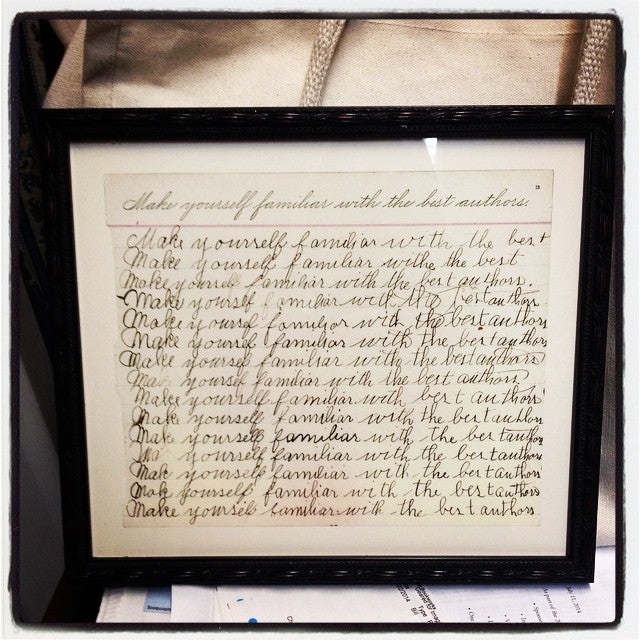 13
Make yourself familiar with the best authors.
Make yourself familiar with the best
Make yourself familiar withe the best
Make yourself familiar with the best authors.
Make yourself familiar with the best authors
Make yourself familiar with the best authors
Make yourself familiar with the best authors
Make yourself familiar with the best authors
Make yourself familiar with the best authors
Make yourself familiar with best authors
Make yourself familiar with the best authors
Make yourself familiar with the best authors
yourself familiar with the best authors
Make yourself familiar with the best authors
Make yourself familiar with the best authors
Make yourself familiar with the best authors
July 31, 2014